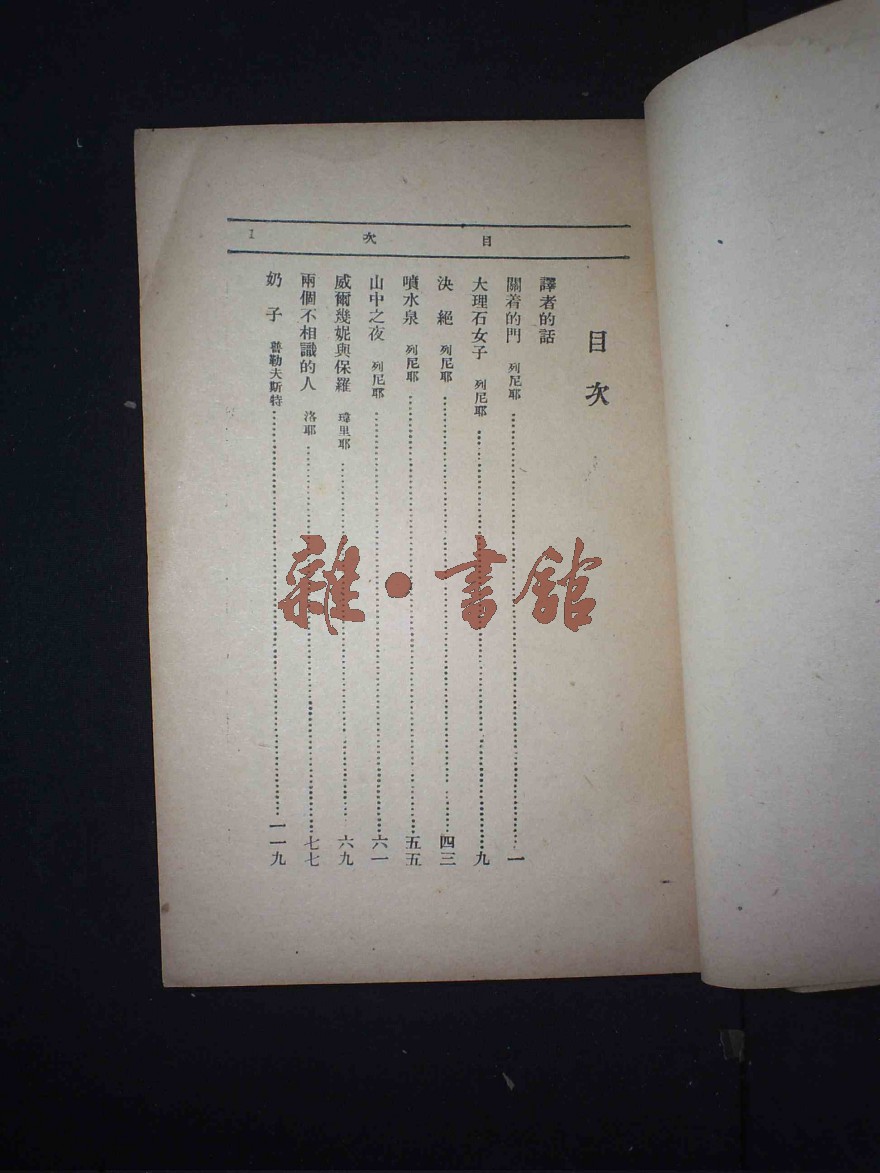 目 次 1
目 次
譯者的話
關着的門 列尼耶 一
大理石女子 列尼耶 九
決 絕 列尼耶 四三
噴水泉 列尼耶 五五
山中之夜 列尼耶 六一
威爾幾妮與保羅 瑋里耶 六九
兩個不相識的人 洛耶 七七
奶 子 普勒夫斯特 一一九
雜·書館